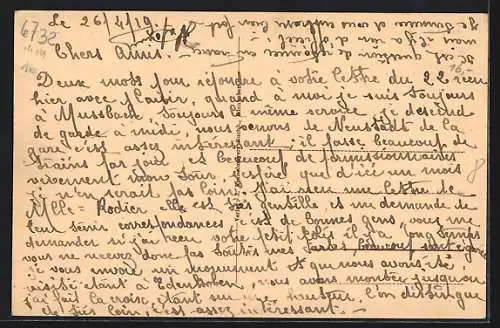 Le 26/4/19
6732
Chers Amis.
Deux mots pour répondre à votre lettre du 22 reçu
hier avec plaisir, quand à moi je suis toujours
à Mussbach, toujours le même service, je descend
de garde à midi, nous venons de Neustadt de la
gare c'est assez intéressant; il passe beaucoup de
trains par jour, et beaucoup de permissionnaires
vivement mon tour, j'espère que d'ici un mois
je n'en serait pas loin. J'ai reçu une lettre de
Mlle Rodier elle est très gentille, et me demande de
leur tenir correspondances c'est de bonnes gens vous me
demander si j'ai reçu votre petit colis il y a longtemps
vous ne recevez donc pas toutes mes cartes beaucoup sont égarées
je vous envoie un monument que nous avons été
visité étant à Edenkoben, nous avons montée jusqu'où
j'ai fait la croix, étant sur une hauteur, l'on distingue
de très loin, c'est assez intéressant.